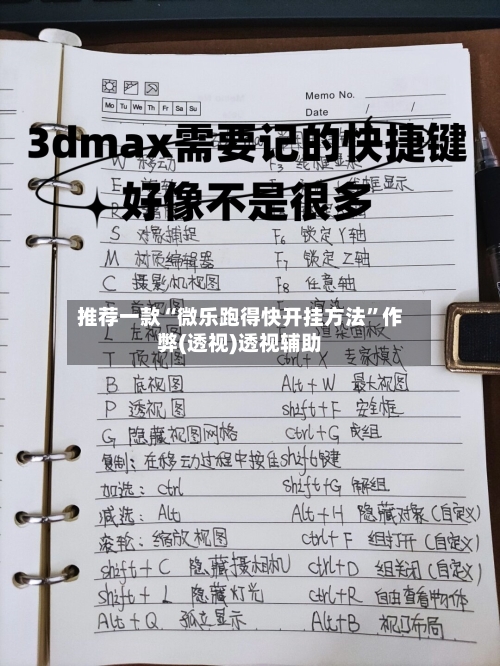 Memo No.
Mo Tu We Th Fr Sa Su
Date / /
3dmax需要记的快捷键
好像不是很多
W 移动
F3
E
S 对象捕捉 F6 锁定Y轴
M 材质编辑器 F7 锁定Z轴
C 摄影机视图 F8 任意轴
推荐一款“微乐跑得快开挂方法”作
弊(透视)透视辅助
T 顶视图 ctrl+X 专家模式
B 底视图 Alt+W 最大视图
P 透视图 shift+F 安全框
G 隐藏视图网格 ctrl+G 成组
复制：在移动过程中按住shift键
加选：ctrl shift+G 解组
减选：Alt Alt+H 隐藏对象(自定义)
滚轮：缩放视图 ctrl+F 组打开(自定义)
shift+C 隐藏摄相机 ctrl+D 组关闭(自定义)
shift+L 隐藏灯光 ctrl+R 自由查看物体
Alt+Q 孤立显示 Alt+B 视口布局